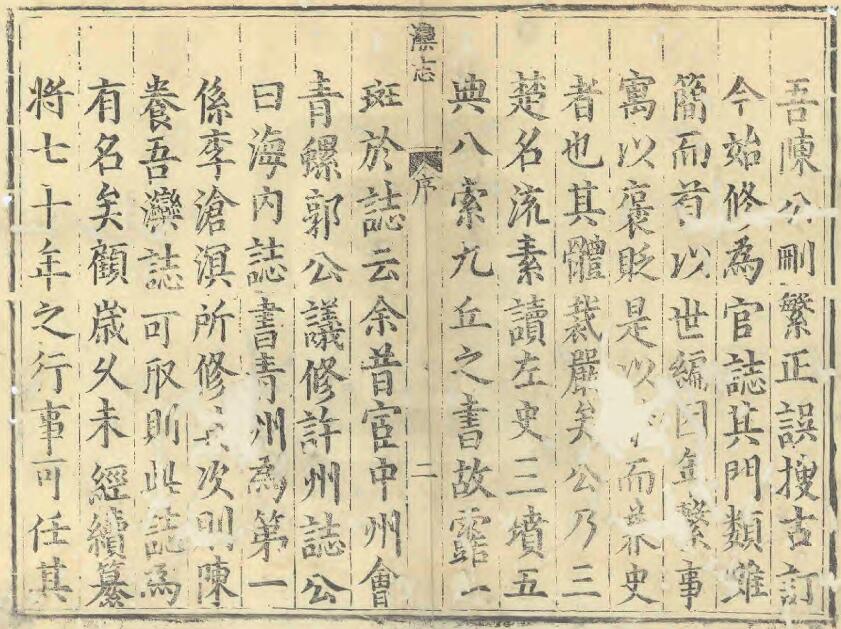 吾陳公刪繁正誤搜古訂
今始修為官誌其門類雖
簡而首以世編因年繫事
寓以褒貶是以而兼史
者也其體裁嚴矣公乃三
楚名流素讀左史三墳五
典八索九丘之書故露一
灤志
序
二
斑於誌云余昔宦中州會
青螺郭公議修許州誌公
曰海内誌書青州為第一
係李滄溟所修其次則陳
養吾灤誌可取則此誌為
有名矣顧歲久未經續纂
將七十年之行事可任其